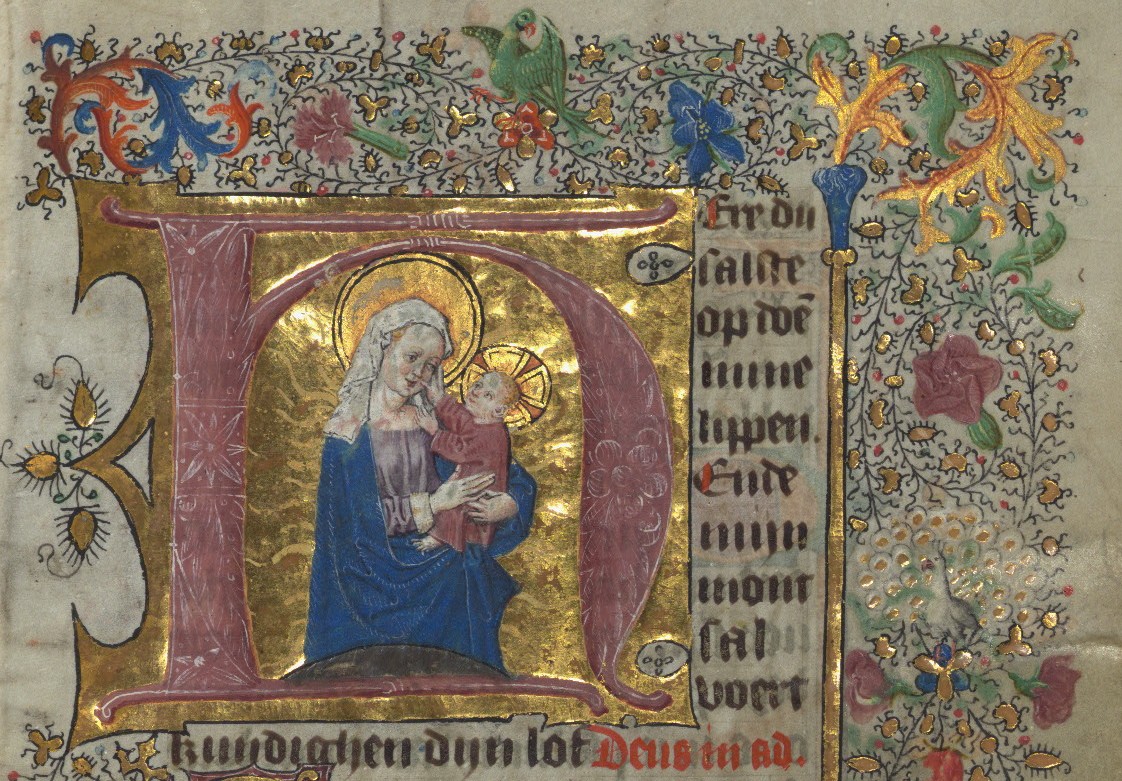 H Ere du
salste
op doē
mine
lippen.
Ende
mijn
mont
sal
voert
kundighen dijn lof Deus in ad.